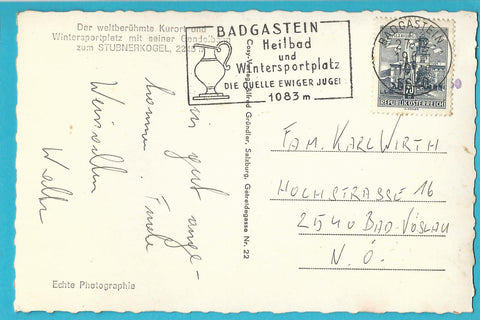 Der weltberühmte Kurort und
Wintersportplatz mit seiner Gondelbahn
zum STUBNERKOGEL, 2245 m
BADGASTEIN
Heilbad
und
Wintersportplatz
DIE QUELLE EWIGER JUGEND
1083 m
BADGASTEIN
REPUBLIK ÖSTERREICH
Cosy-Verlag Alfred Gründler, Salzburg, Getreidegasse Nr. 22
gut ange-
kommen.
Walter
FAM. KARL WIRTH
HOCHSTRASSE 16
2540 BAD-VÖSLAU
N.Ö.
Echte Photographie